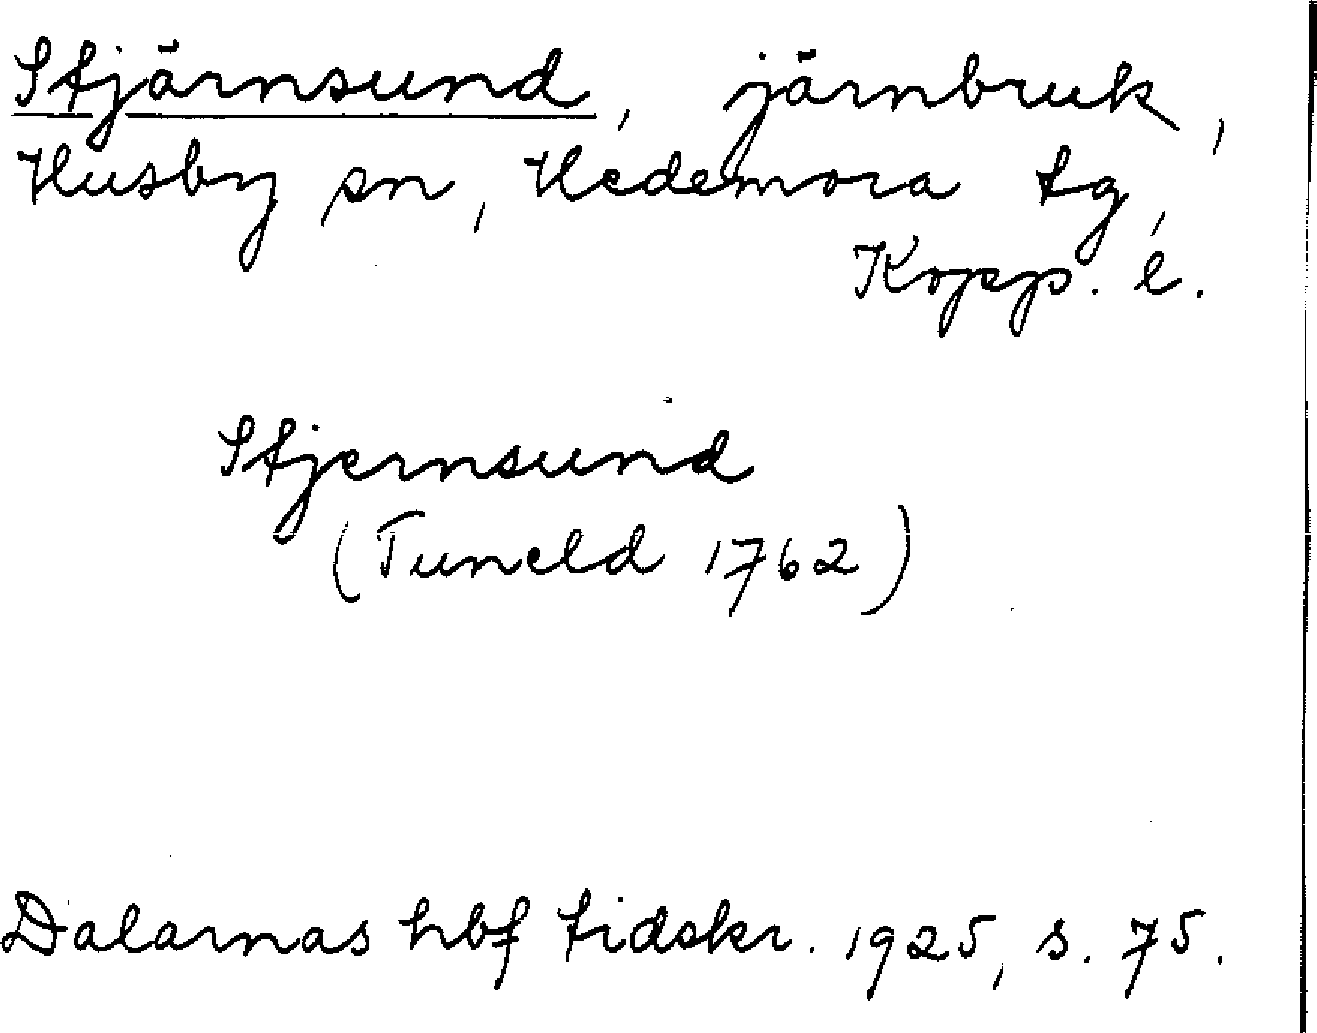 Stjärnsund, järnbruk,
Husby sn, Hedemora tg,
Kopp. l.
Stjernsund
(Tuneld 1762)
Dalarnas hbf tidskr. 1925, s. 75.